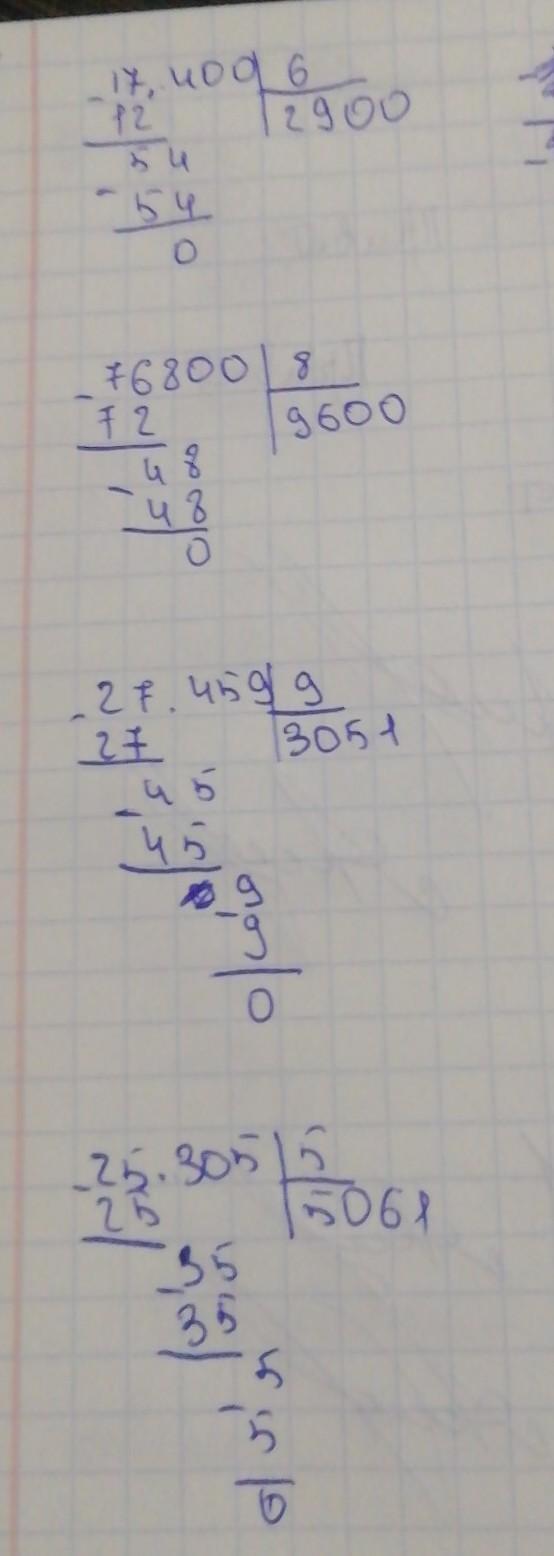 -17.400 | 6
12 | 2900
54
- 54
0
- 76800 | 8
72 | 9600
48
- 48
0
- 27.459 | 9
27 | 3051
- 45
45
9
- 9
0
- 25.305 | 5
25 | 5061
- 35
35
5
- 5
0